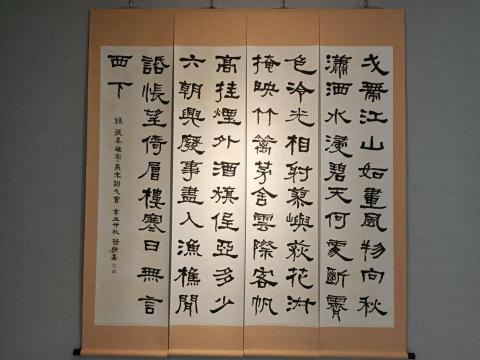 弌帶江山如畫風物向秋
瀟洒水浸碧天何處斷霽
色冷光相射蓼嶼荻花洲
掩映竹籬茅舍雲際客帆
高挂煙外酒旗低亞多少
六朝興廢事盡入漁樵閒
話悵望倚層樓寒日無言
西下
錄張昇離亭燕宋詞一首 辛丑仲秋